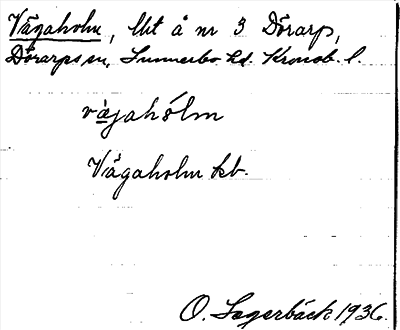 Vägaholm, lht å nr 3 Dörarp,
Dörarps sn, Sunnerbo hd. Kronob. l.
vägahólm
Vägaholm kb.
O. Lagerbäck 1936.